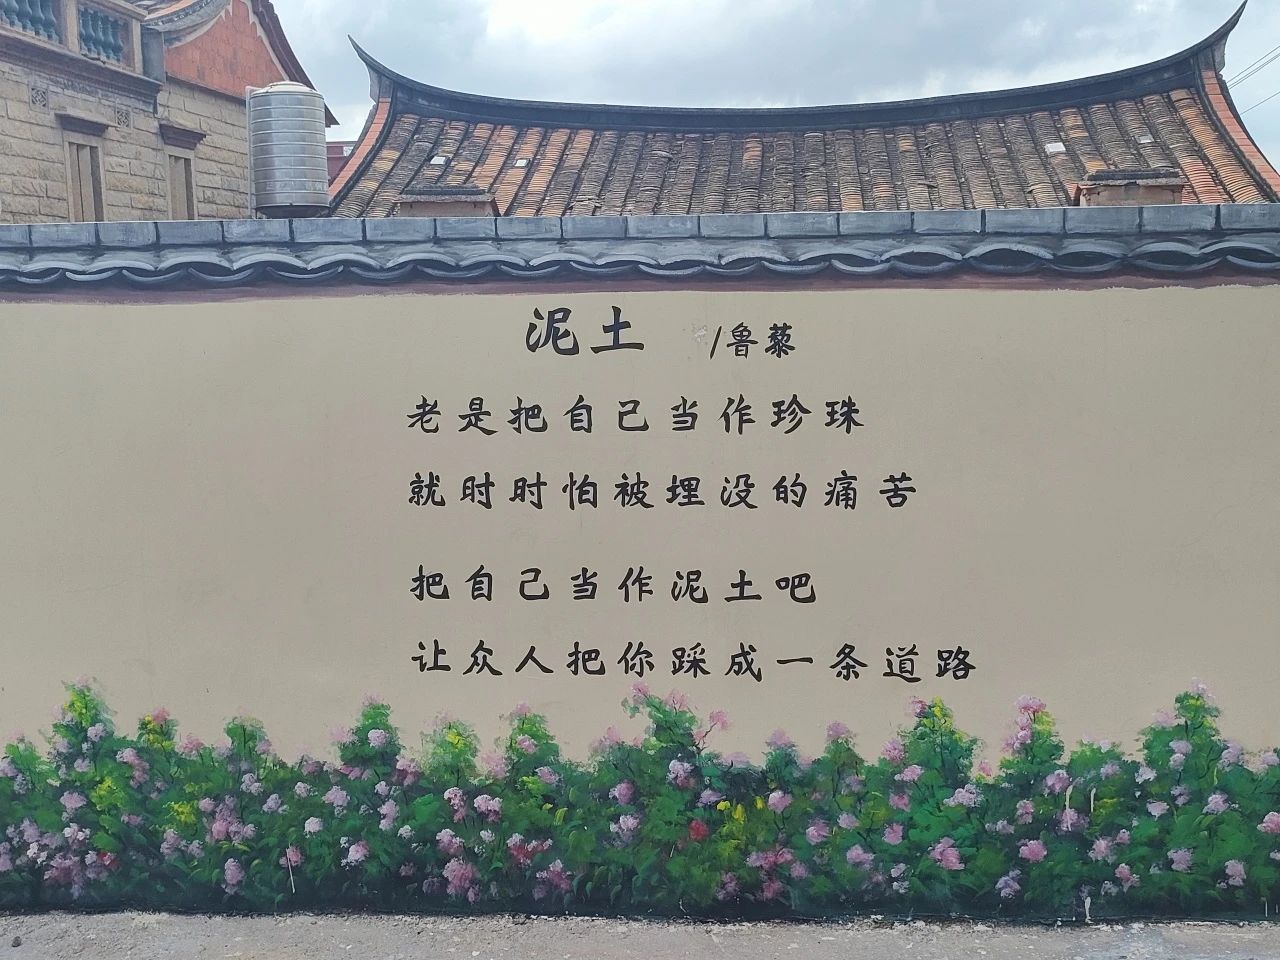 泥土 /鲁藜
老是把自己当作珍珠
就时时怕被埋没的痛苦
把自己当作泥土吧
让众人把你踩成一条道路